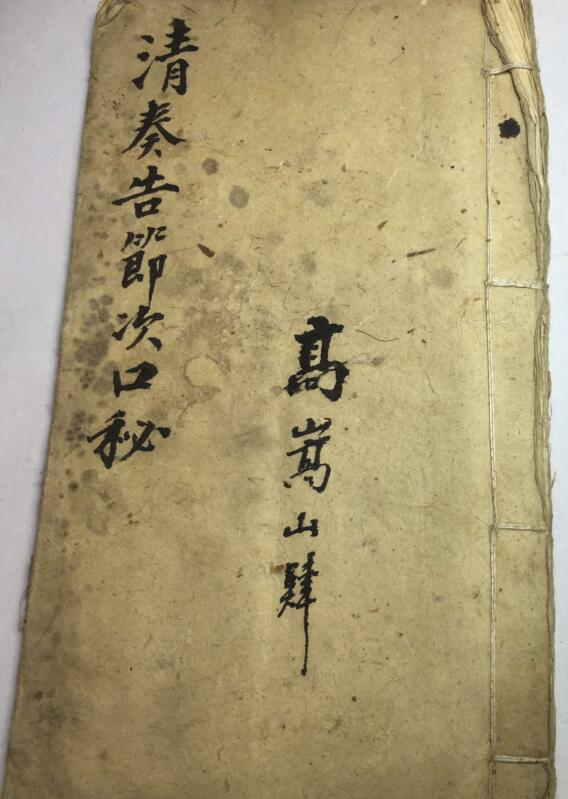 高嵩山肄
清奏告節次口秘